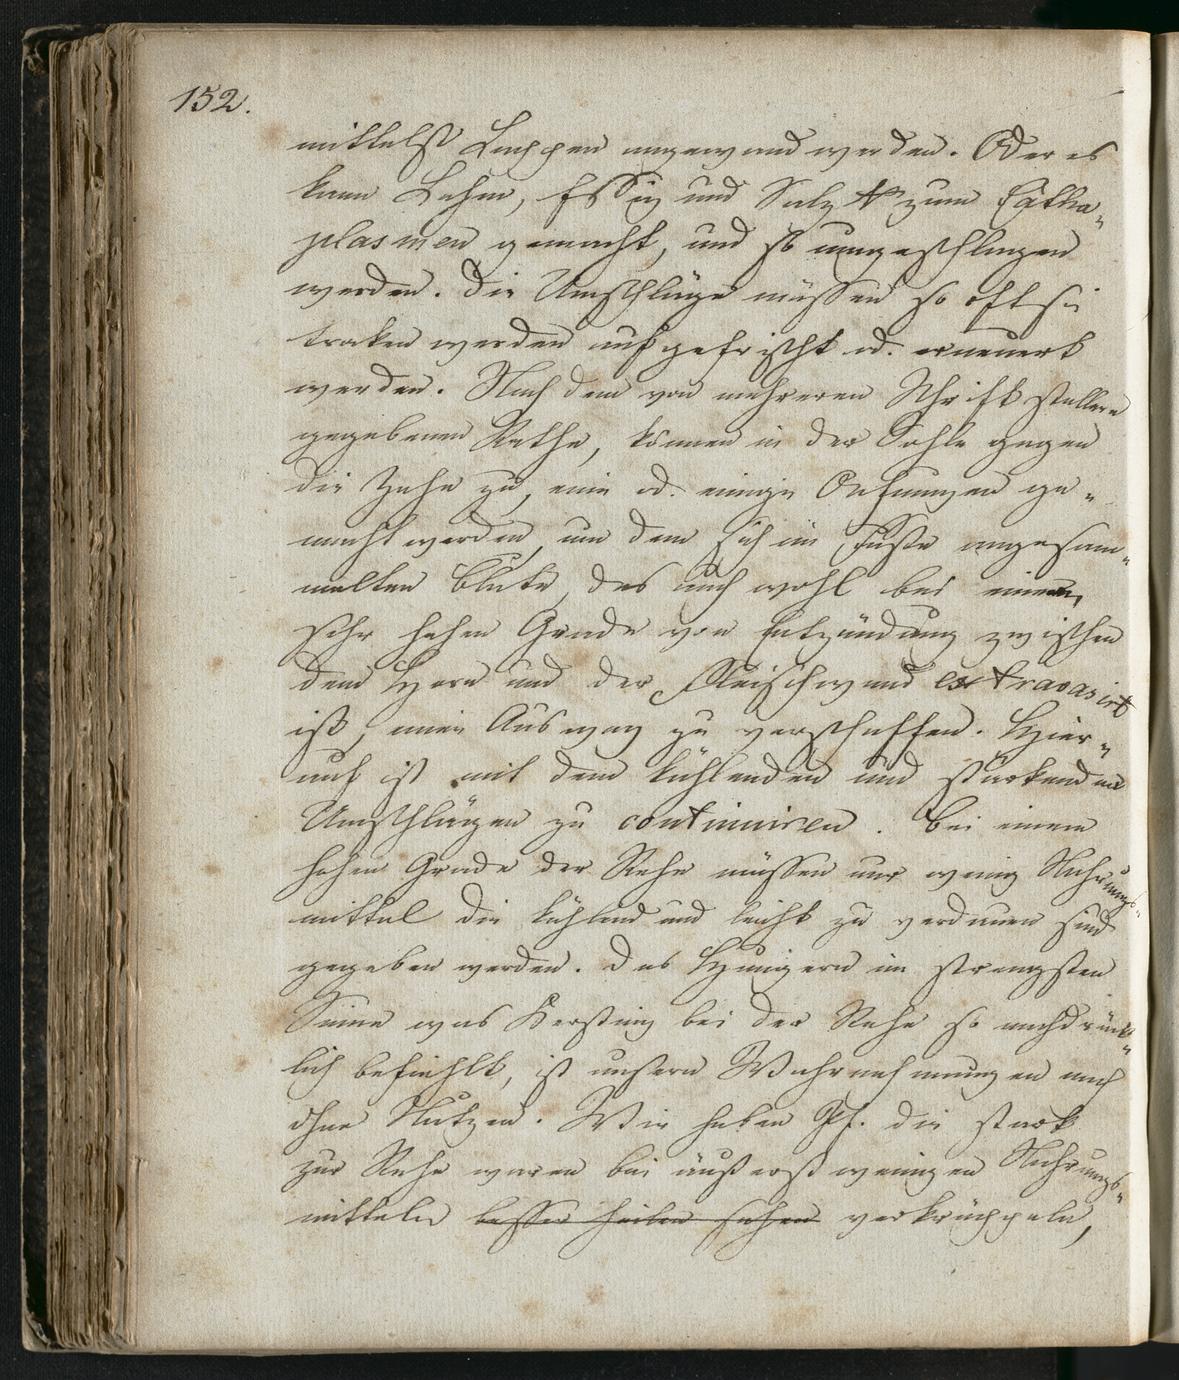 152.
mittelst Lappen angewand werden. Oder es
kann Lehm, Essig und Salz zum Catha„
plasmen gemacht, und so umgeschlagen
werden. Die Umschläge müssen so oft sie
trocken werden aufgefrischt od. erneuert
werden. Nach dem von mehreren Schriftstellern
gegebenen Rathe, können in der Sohle gegen
die Zehe zu, eine od. einige Oefnungen ge„
macht werden, um dem sich im Fuße angesam„
melten Blute, das auch wohl bei einem
sehr hohen Grade von Entzündung zwischen
dem Horn und der Fleischwand extravasirt
ist, einen Ausweg zu verschaffen. Hier„
auf ist mit dem kühlenden und stärkenden
Umschlägen zu continuiren. Bei einem
hohen Grade der Rehe müssen nur wenig Nahrungs„
mittel die kühlend und leicht zu verdauen sind
gegeben werden. Das Hungern im strengsten
Sinne was Kersting bei der Rehe so nachdrück„
lich befiehlt, ist unsern Wahrnehmungen nach
ohne Nutzen. Wir haben Pf. die stark
zur Rehe waren bei äußerst wenigen Nahrungs„
mitteln besser heilen sehen verkrüppeln,